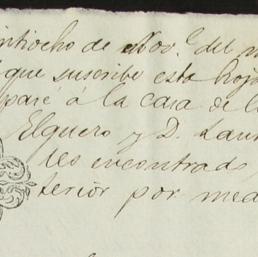 intiocho de Nov.e del m
que suscribe esta hoja
paré á la casa de l
Elguero y D. Laur
les encontrad
terior por med